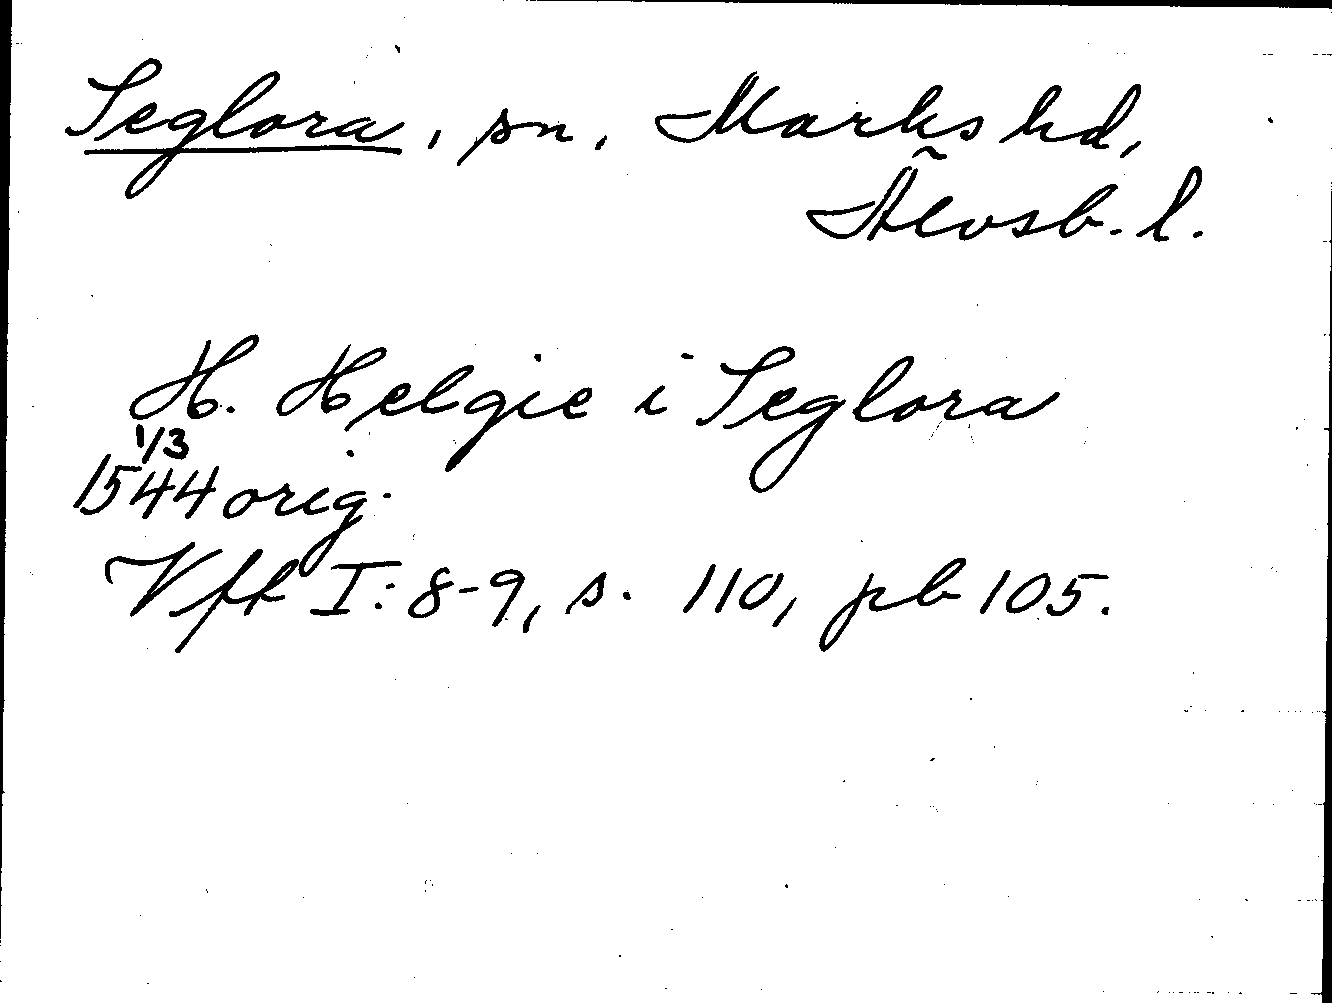 Seglora, sn, Marks hd,
Älvsb. l.
H. Helgie i Seglora
1/3
1544 orig.
Vfk I: 8-9, s. 110, pb 105.